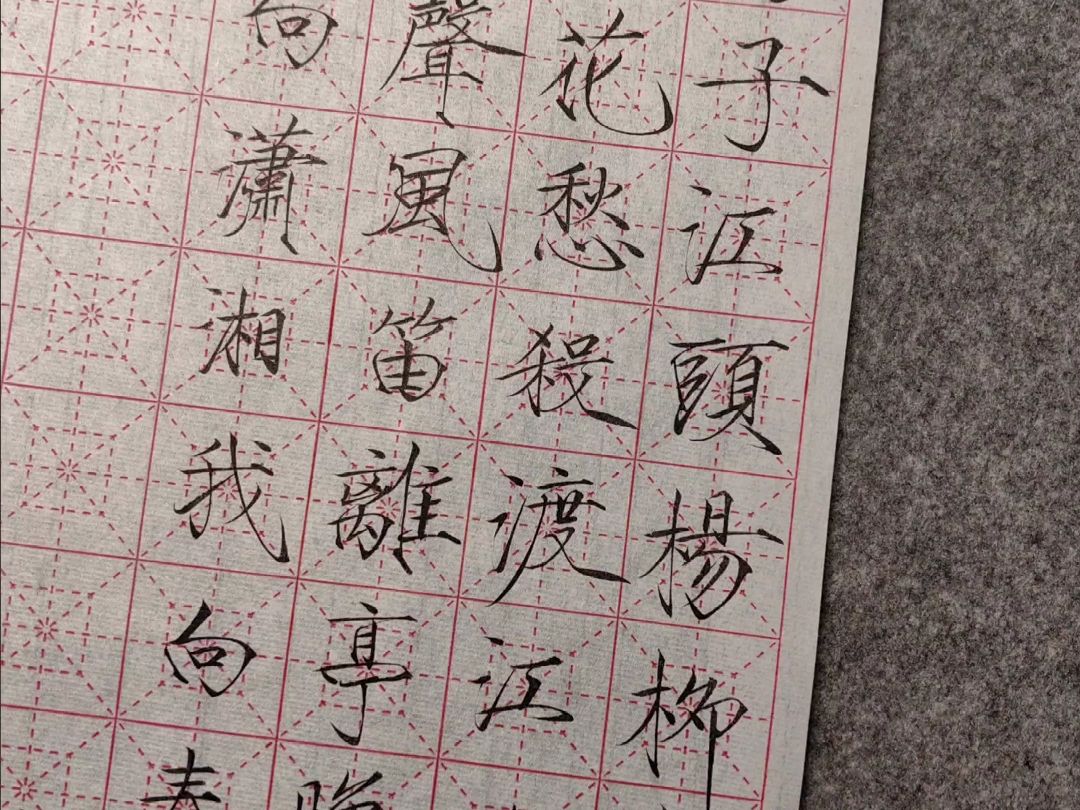 子江頭楊柳
花愁殺渡江
聲風笛離亭晚
向瀟湘我向秦